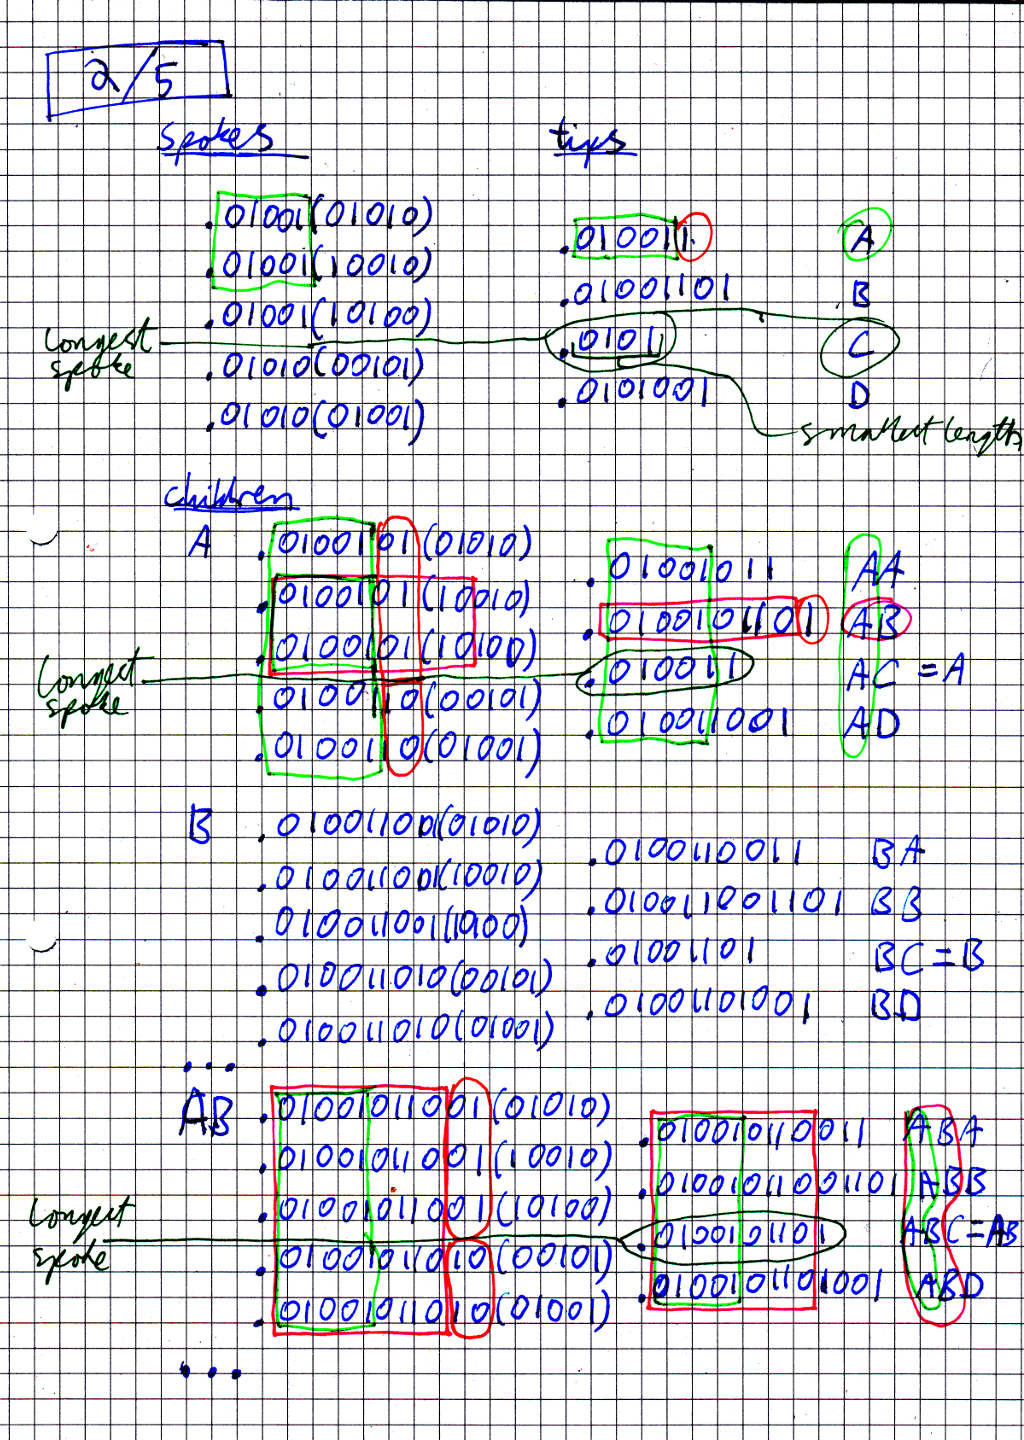 2/5
spokes tips
.01001(01010)
.01001(10010)
.01001(10100)
.01010(00101)
.01010(01001)
.010011 A
.01001101 B
.01011 C
.0101001 D
longest spoke
smallest length
children
A .0100101(01010)
.0100101(10010)
.0100101(10100)
.0100110(00101)
.0100110(01001)
.01001011 AA
.0100101101 AB
.010011 AC = A
.010011001 AD
longest spoke
B .010011001(01010)
.010011001(10010)
.010011001(10100)
.010011010(00101)
.010011010(01001)
.0100110011 BA
.010011001101 BB
.01001101 BC = B
.01001101001 BD
...
AB .01001011001(01010)
.01001011001(10010)
.01001011001(10100)
.01001011010(00101)
.01001011010(01001)
.010010110011 ABA
.01001011001101 ABB
.0100101101 ABC = AB
.0100101101001 ABD
longest spoke
...